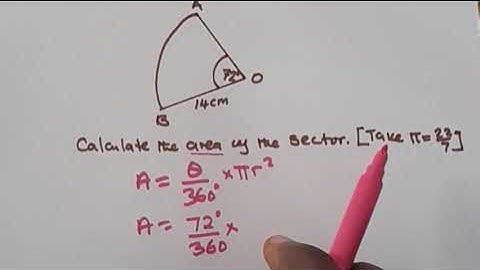 A
72°
O
B
14cm
Calculate the area of the sector. [Take π = 22/7]
A = θ/360° × πr²
A = 72°/360 ×